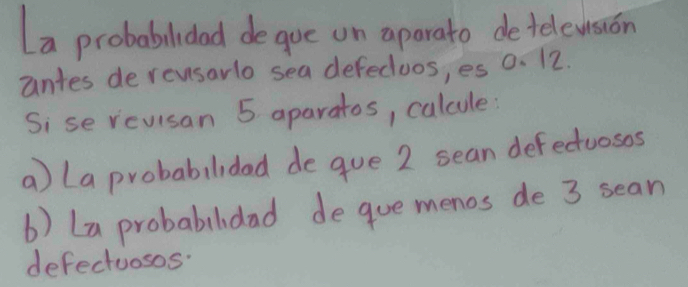 La probabilidad de que un aparato de televisión
antes de revisarlo sea defectuos, es 0.12.
Si se revisan 5 aparatos, calcule:
a) La probabilidad de que 2 sean defectuosos
b) La probabilidad de que menos de 3 sean
defectuosos.